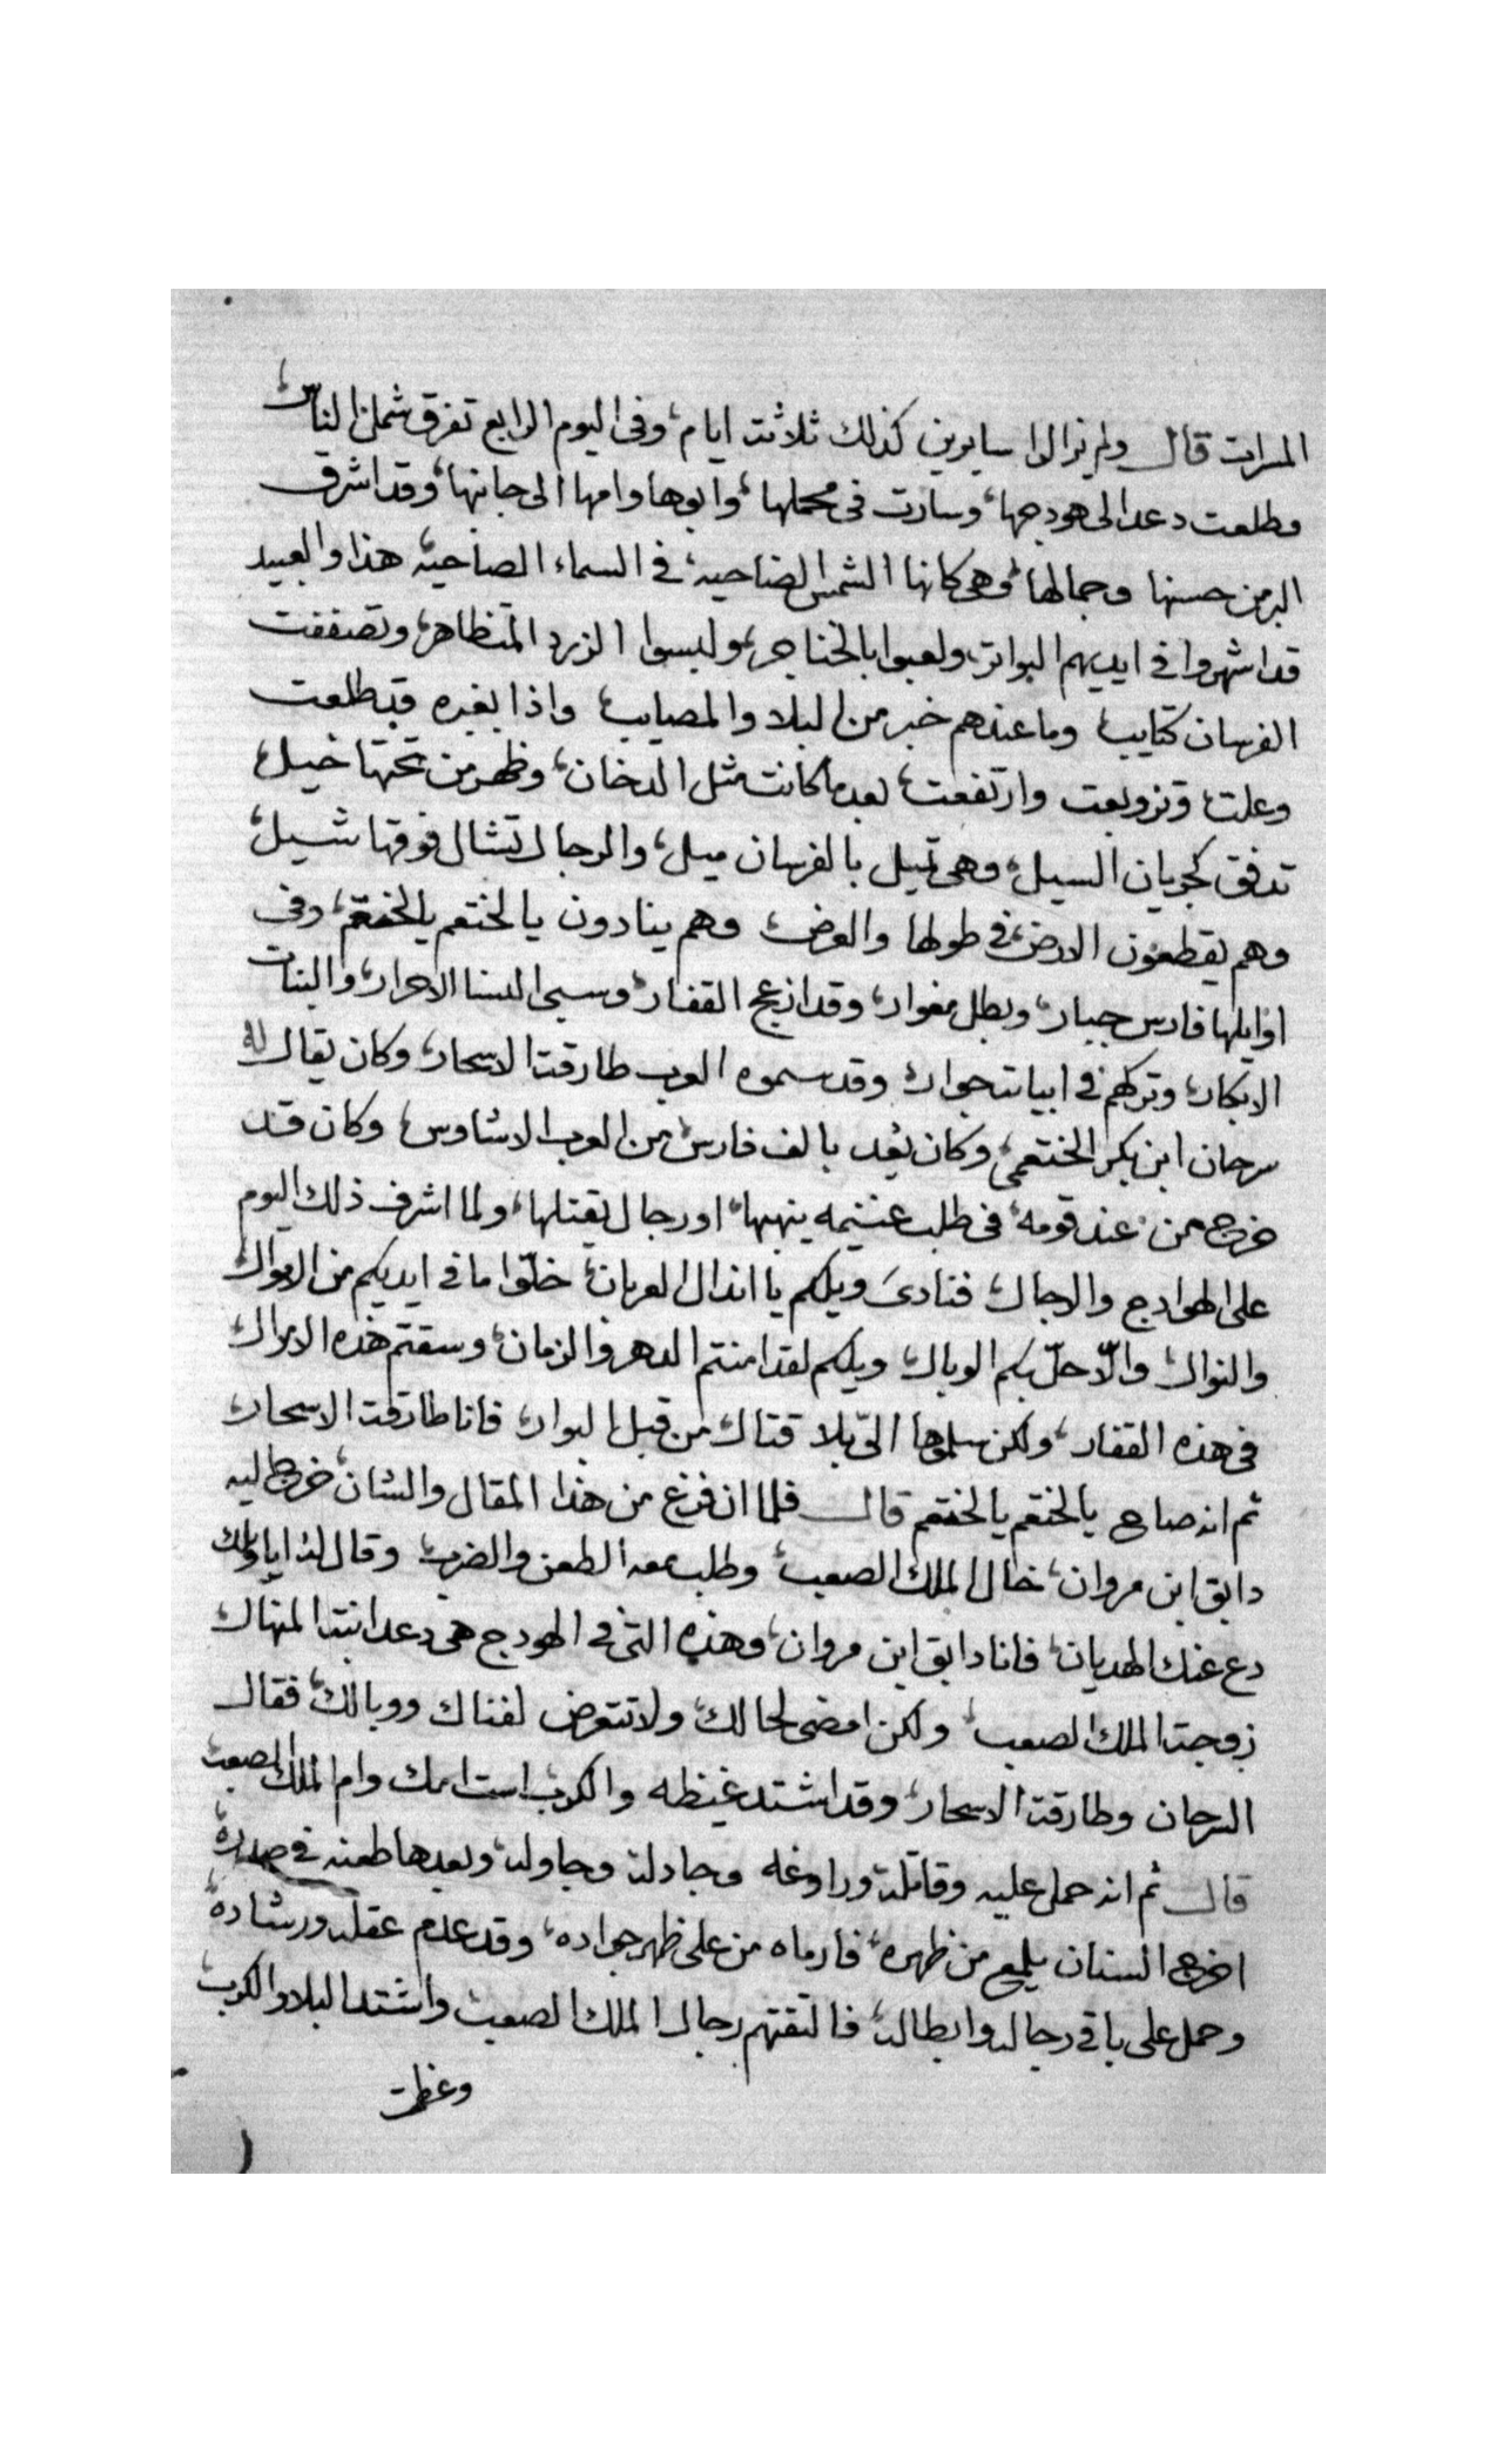 المسرات قال ولم يزالوا سايرين كذلك ثلاثت ايام، وفى اليوم الرابع تفرق شمل الناس،
وطلعت دعد الى هودجها، وسارت فى محملها، وابوها وامها الى جانبها، وقد اشرق
البر من حسنها وجمالها، وهى كانها الشمس الضاحيه، في السماء الصاحيه، هذا والعبيد
قد اشهروا في ايديهم البواتر، ولعبوا بالخناجر، ولبسوا الزرد المتظاهر، وتصففت
الفرسان كتايب، وما عندهم خبر من البلا والمصايب، واذا بغبره قد طلعت
وعلت، وتزوبعت وارتفعت، بعدما كانت مثل الدخان، وظهر من تحتها خيل،
تدفق كجريان السيل، وهى تميل بالفرسان ميل، والرجال تنشال فوقها شيل،
وهم يقطعون الارض، في طولها والعرض، وهم ينادون يالختعم يالختعم، وفى
اوايلها فارس جبار، وبطل مغوار، وقد ازعج القفار، وسبى النسا الاحرار، والبنات
الابكار، وتركهم في ابيات جوار، وقد سموه العرب طارقت الاسحار، وكان يقال له
سرحان ابن بكر الختعمى، وكان يُعد بالف فارس، من العرب الاشاوس، وكان قد
خرج من عند قومه، فى طلب غنيمه ينهبها، او رجال يقتلها، ولما اشرف ذلك اليوم
على الهوادج والاجمال، فنادىَ ويلكم يا انذال العربان، خلّوا ما في ايديكم من الاموال
والنوال، والّا حلّ بكم الوبال، ويلكم لقد امنتم الدهر والزمان، وسقتم هذه الاموال
فى هذه القفار، ولكن سلموها الىّ بلا قتال، من قبل البوار، فانا طارقت الاسحار،
ثم انه صاح يالختعم يالختعم قال فلما ان فرغ من هذا المقال والشان، خرج اليه
دابق ابن مروان، خال الملك الصعب، وطلب معه الطعن والضرب، وقال له اياويلك
دع عنك الهديان، فانا دابق ابن مروان، وهذه التى في الهودج هى دعد ابنت المنهال
زوجت الملك الصعب، ولكن امضى لحالك، ولا تتعرض لفناك ووبالك، فقال
السرحان وطارقت الاسحار، وقد اشتد غيظه والكرب، است امك وام الملك الصعب،
قال ثم انه حمل عليه وقاتله وراوغه وجادله وجاوله، وبعدها طعنه في صدره
اخرج السنان يلمع من ظهره، فارماه من على ظهر جواده، وقد عدم عقله ورشاده،
وحمل على باقي رجاله وابطاله، فالتقتهم رجال الملك الصعب، واشتد البلا والكرب،
وعظمت